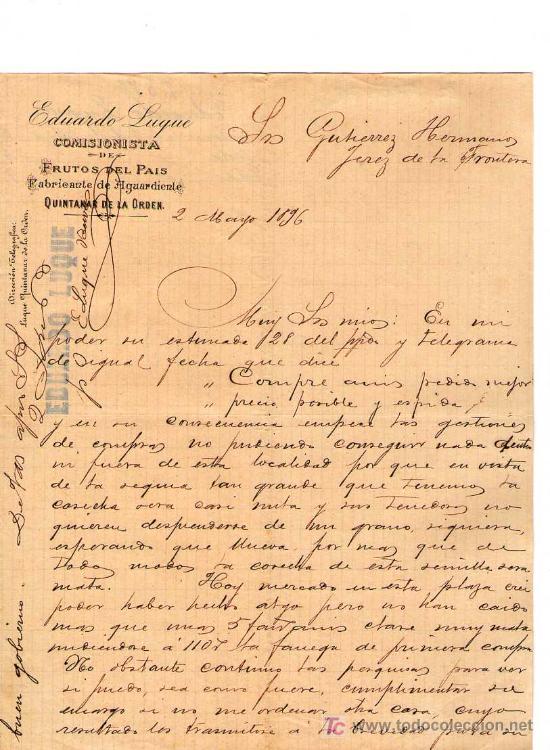 Eduardo Luque
COMISIONISTA
DE
FRUTOS DEL PAIS
Fabricante de Aguardiente
QUINTANAR DE LA ORDEN.
Dirección Telegráfica:
Luque Quintanar de la Orden.
EDUARDO LUQUE
Srs Gutierrez Hermanos
Jerez de la Frontera
2 Mayo 1896
Muy Srs mios: En mi
poder su estimada 28 del ppdo y telegrama
de igual fecha que dice
" Compre anis pedido mejor
precio posible y espida "
y en su consecuencia empece las gestiones
de compras no pudiendo conseguir nada
ni fuera de esta localidad por que en vista
de la sequia tan grande que tenemos la
cosecha sera casi nula y sus tenedores no
quieren desprenderse de un grano, siquiera,
esperando que llueva por mas que de
todos modos la cosecha de esta semilla sera
mala. Hoy mercado en esta plaza crei
poder haber hecho algo pero no han caido
mas que unas 5 fans anis clase muy mala
midiendose á 110 r la fanega de primera compra
No obstante continuo las pesquisas para ver
si puedo, sea como fuere, cumplimentar su
encargo si no me ordenar otra cosa, cuyo
resultado los trasmitire á para su
buen gobierno. De Vds afmo S S
E Luque
todocoleccion
www.todocoleccion.net